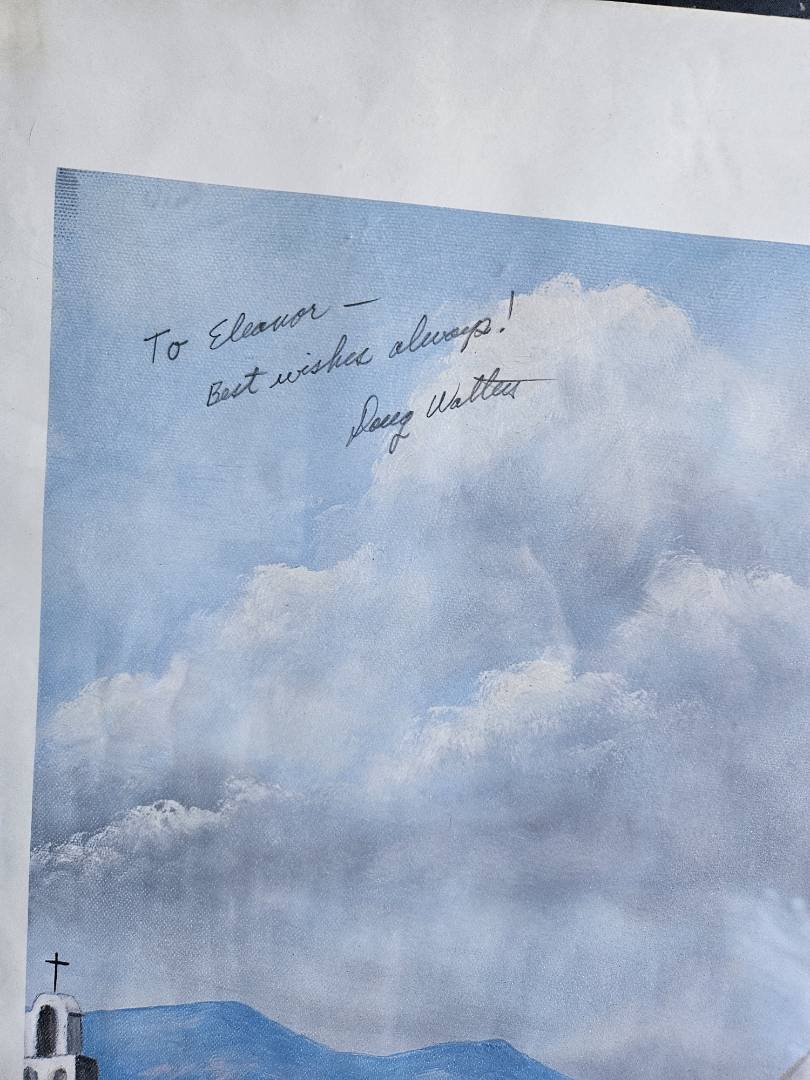 To Eleanor —
Best wishes always!
Doug Walters